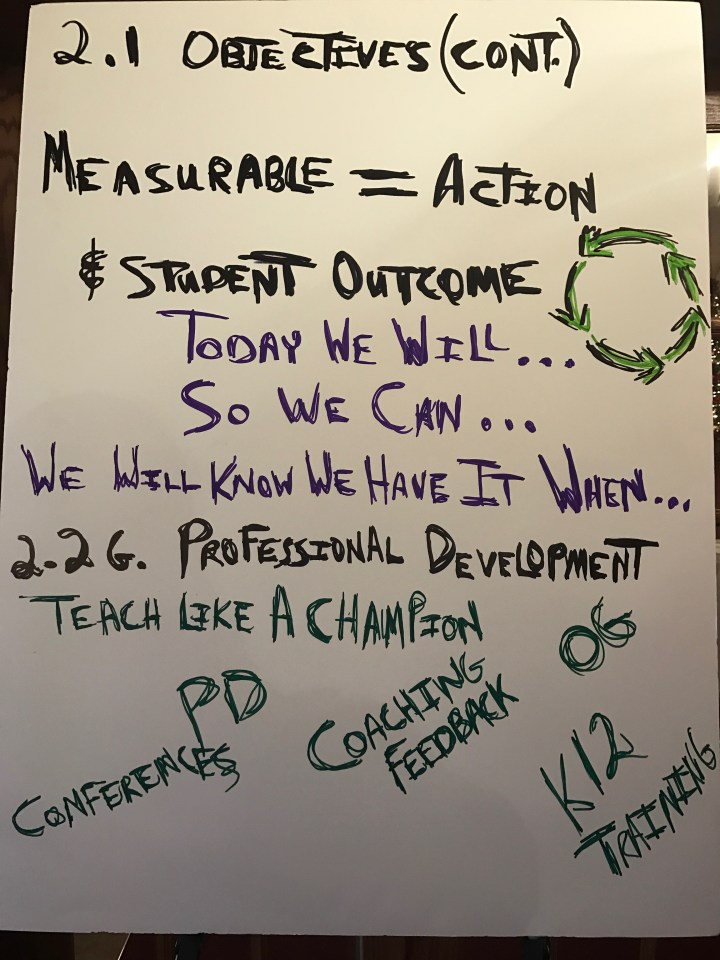 2.1 OBJECTIVES (CONT.)
MEASURABLE = ACTION
& STUDENT OUTCOME
TODAY WE WILL...
SO WE CAN...
WE WILL KNOW WE HAVE IT WHEN...
2.2 G. PROFESSIONAL DEVELOPMENT
TEACH LIKE A CHAMPION
OG
PD
COACHING
FEEDBACK
CONFERENCES
K12
TRAINING